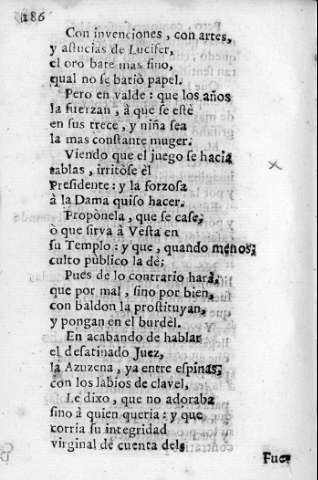 186
Con invenciones, con artes,
y astucias de Lucifer,
el oro bate mas fino,
qual no se batiò papel.
Pero en valde: que los años
la fuerzan, à que se estè
en sus trece, y niña sea
la mas constante muger.
Viendo que el juego se hacia
tablas, irritòse èl
Presidente: y la forzosa
à la Dama quiso hacer.
Propònela, que se case,
ò que sirva à Vesta en
su Templo: y que, quando menos,
culto pùblico la dè;
Pues de lo contrario harà,
que por mal, sino por bien,
con baldon la prostituyan,
y pongan en el burdèl.
En acabando de hablar
el desatinado Juez,
la Azuzena, ya entre espinas,
con los labios de clavel,
Le dixo, que no adoraba
sino à quien queria: y que
corria su integridad
virginal de cuenta del
Fue